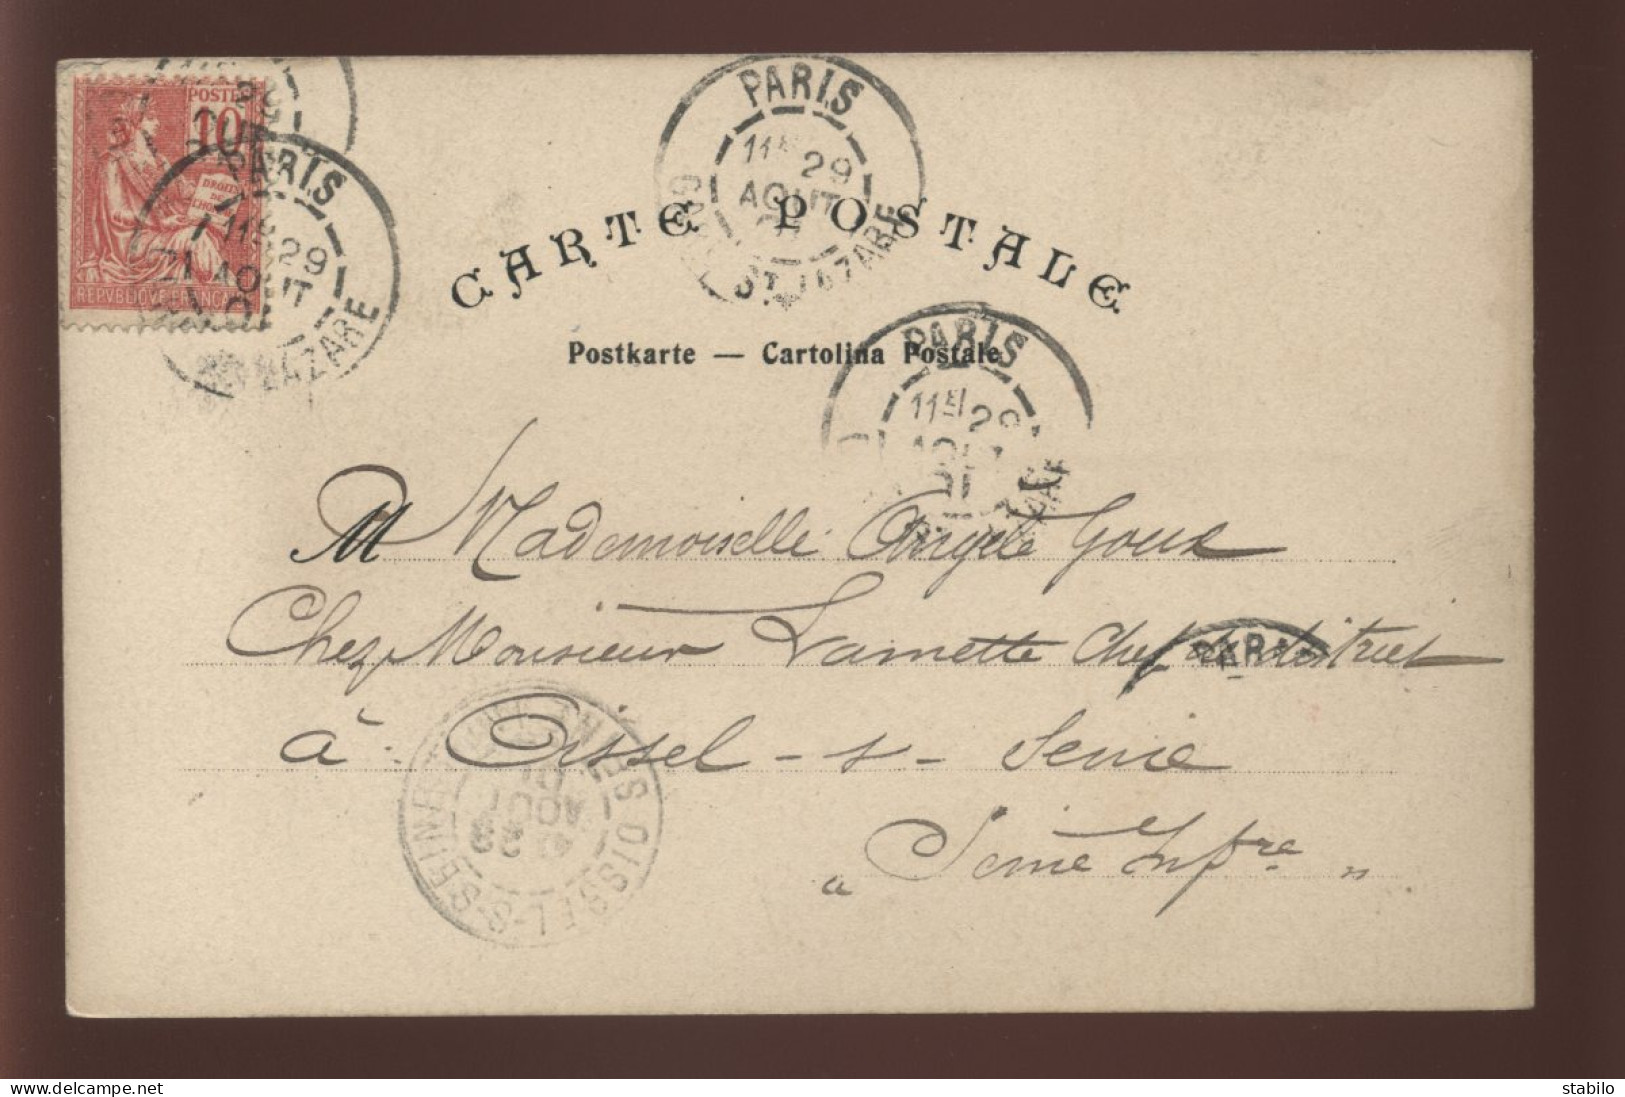 POSTES
10
DROITS
DE
L'HOMME
REPVBLIQVE FRANÇAISE
PARIS
11E 29
AOUT
LAZARE
PARIS
11E 29
AOUT
GARE ST LAZARE
CARTE POSTALE
Postkarte — Cartolina Postale
PARIS
11E 29
AOUT
01
M Mademoiselle Angele Goux
Chez Monsieur Lamette Chef de district
PARIS
à Oissel - s - Seine
"Seine Infre"
OISSEL-S-SEINE
AOUT
01
stabilo